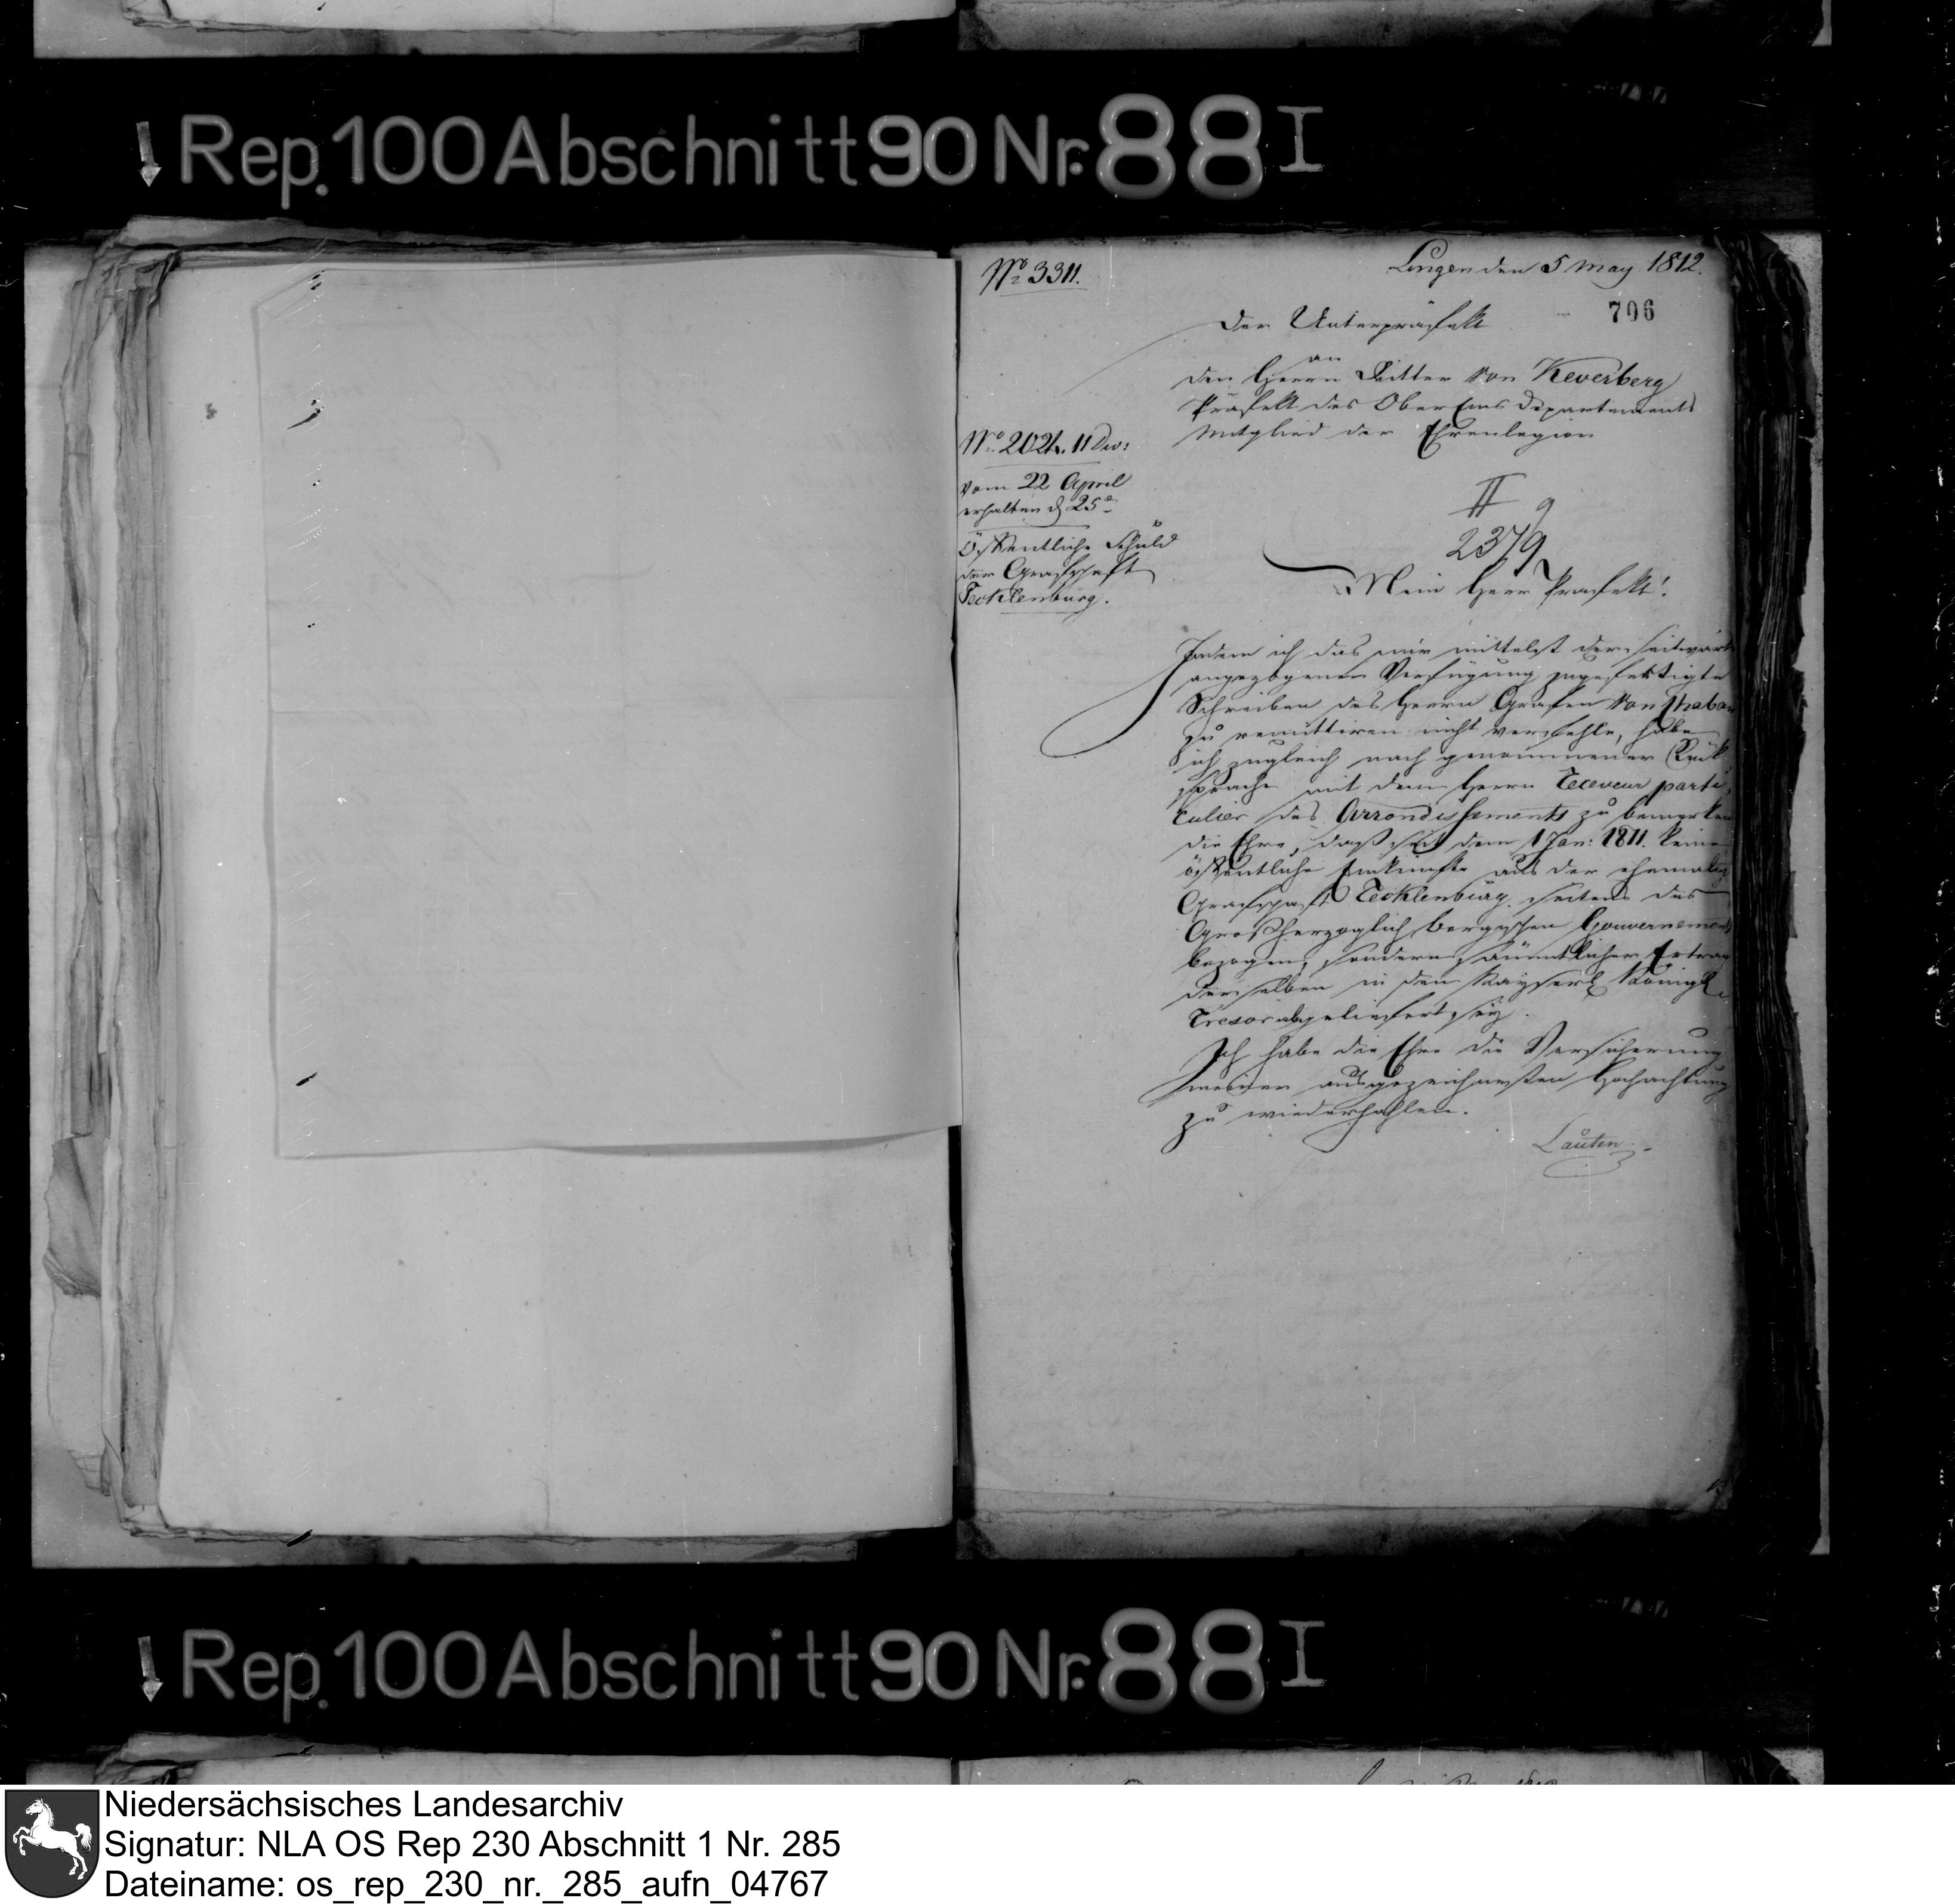 Rep. 100 Abschnitt 90 Nr. 88 I
No 3311.
Lingen den 5 May 1812.
706
Der Unterpräfekt
an
den Herrn Ritter von Keverberg
Präfekt des OberEms Departements
Mitglied der Ehrenlegion
No. 2024. II Div:
vom 22 April
erhalten d 25t
öffentliche Schuld
der Grafschaft
Tecklenburg.
II 9
2379
Mein Herr Präfekt!
Indem ich das mir mittelst der seitwärts
angezogenen Verfügung zugefertigte
Schreiben des Herrn Grafen von Chaban
zu remittiren nicht verfehle, habe
ich zugleich nach genommener Rück
sprache mit dem Herrn Receveur parti
culier des Arrondissements zu bemerken
die Ehre, daß seit dem 1 Jan: 1811. keine
öffentliche Einkünfte aus der ehemalig
Grafschaft Tecklenburg seitens des
Großherzoglich bergischen Gouvernements
bezogen, sondern sämmtlicher Ertrag
derselben in den Kayserl Königl
Tresor abgeliefert sey.
Ich habe die Ehre die Versicherung
meiner ausgezeichnesten Hochachtung
zu wiederhohlen.
Lauten
Rep. 100 Abschnitt 90 Nr. 88 I
Niedersächsisches Landesarchiv
Signatur: NLA OS Rep 230 Abschnitt 1 Nr. 285
Dateiname: os_rep_230_nr._285_aufn_04767